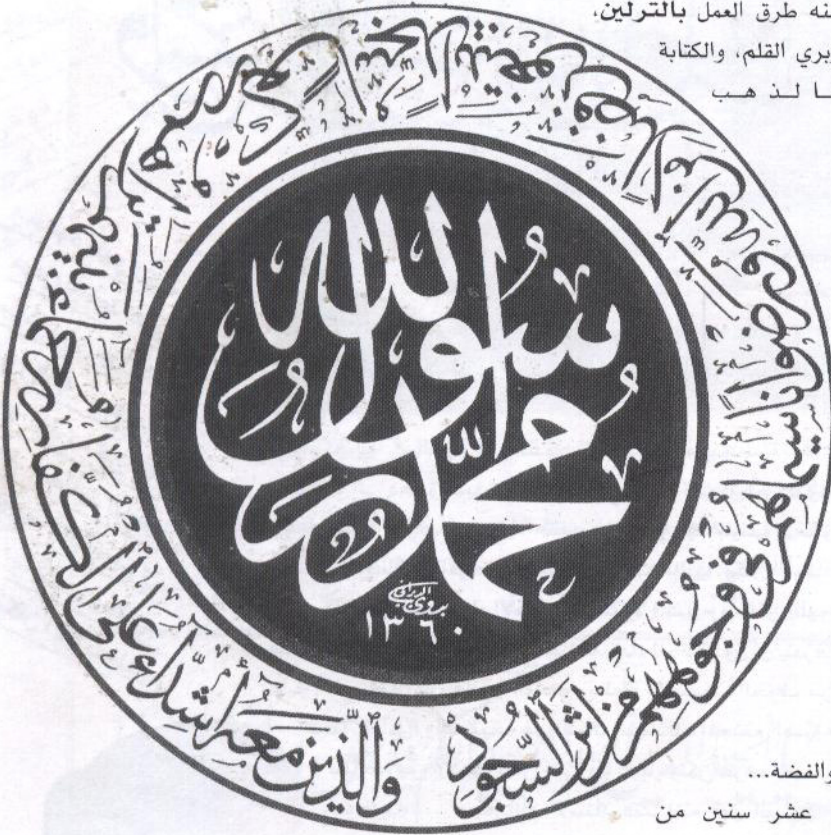 طرق العمل بالترلين،
بري القلم، والكتابة
ـا لـذ هـب
محمد رسول الله
بدوي الديراني
١٣٦٠
والذين معه أشداء على الكفار رحماء بينهم تراهم ركعا سجدا يبتغون فضلا من الله ورضوانا سيماهم في وجوههم من أثر السجود
والفضة...
عشر سنين من